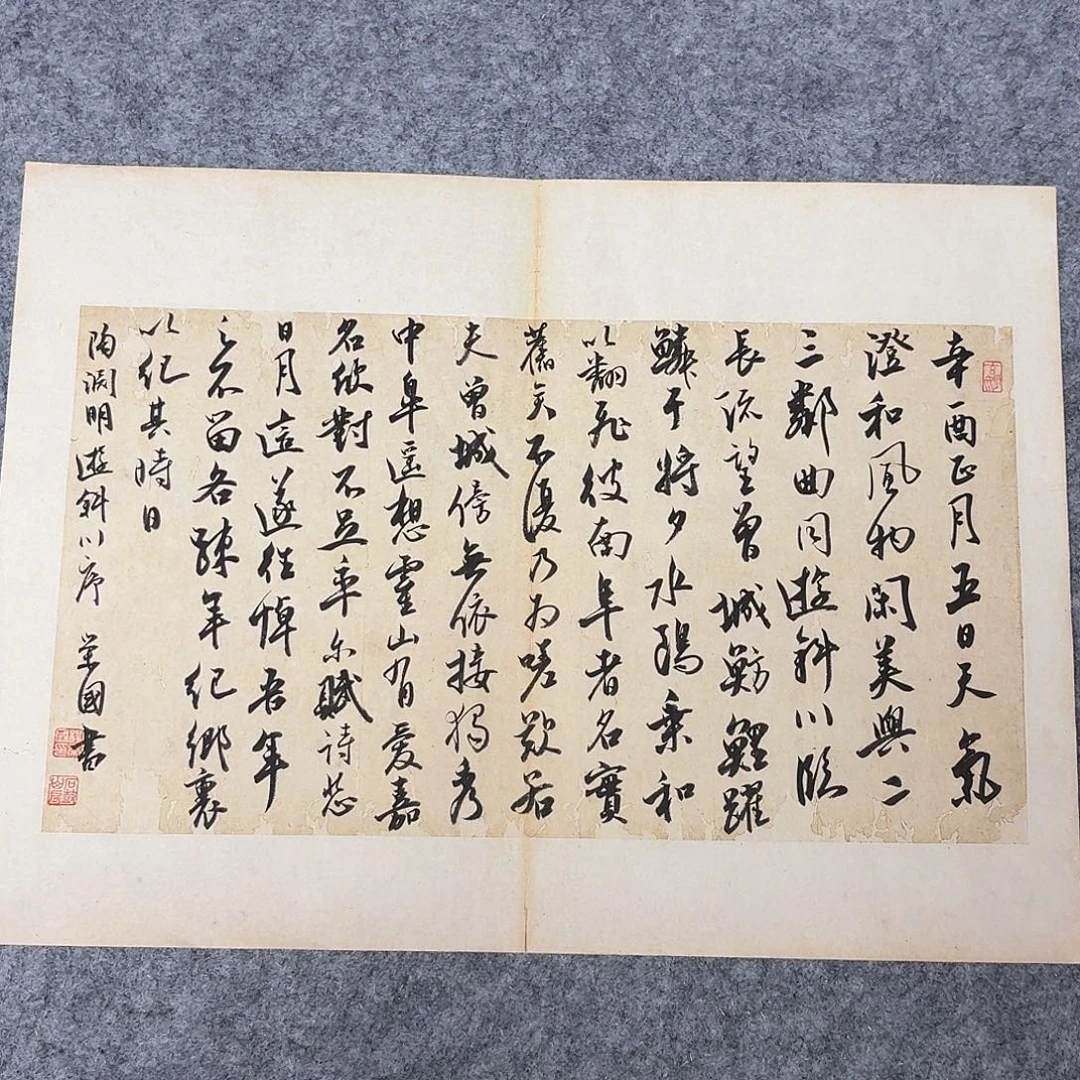 辛酉正月五日天氣
澄和風物閑美與二
三鄰曲同遊斜川臨
長流望曾城魴鯉躍
鱗于將夕水鷗乘和
以翻飛彼南阜者名實
舊矣不復乃為嗟歎若
夫曾城傍無依接獨秀
中皋遥想靈山有愛嘉
名欣對不足率尔賦詩悲
日月遂往悼吾年
之不留各疎年紀鄉裏
以紀其時日
陶淵明遊斜川序 榮國書